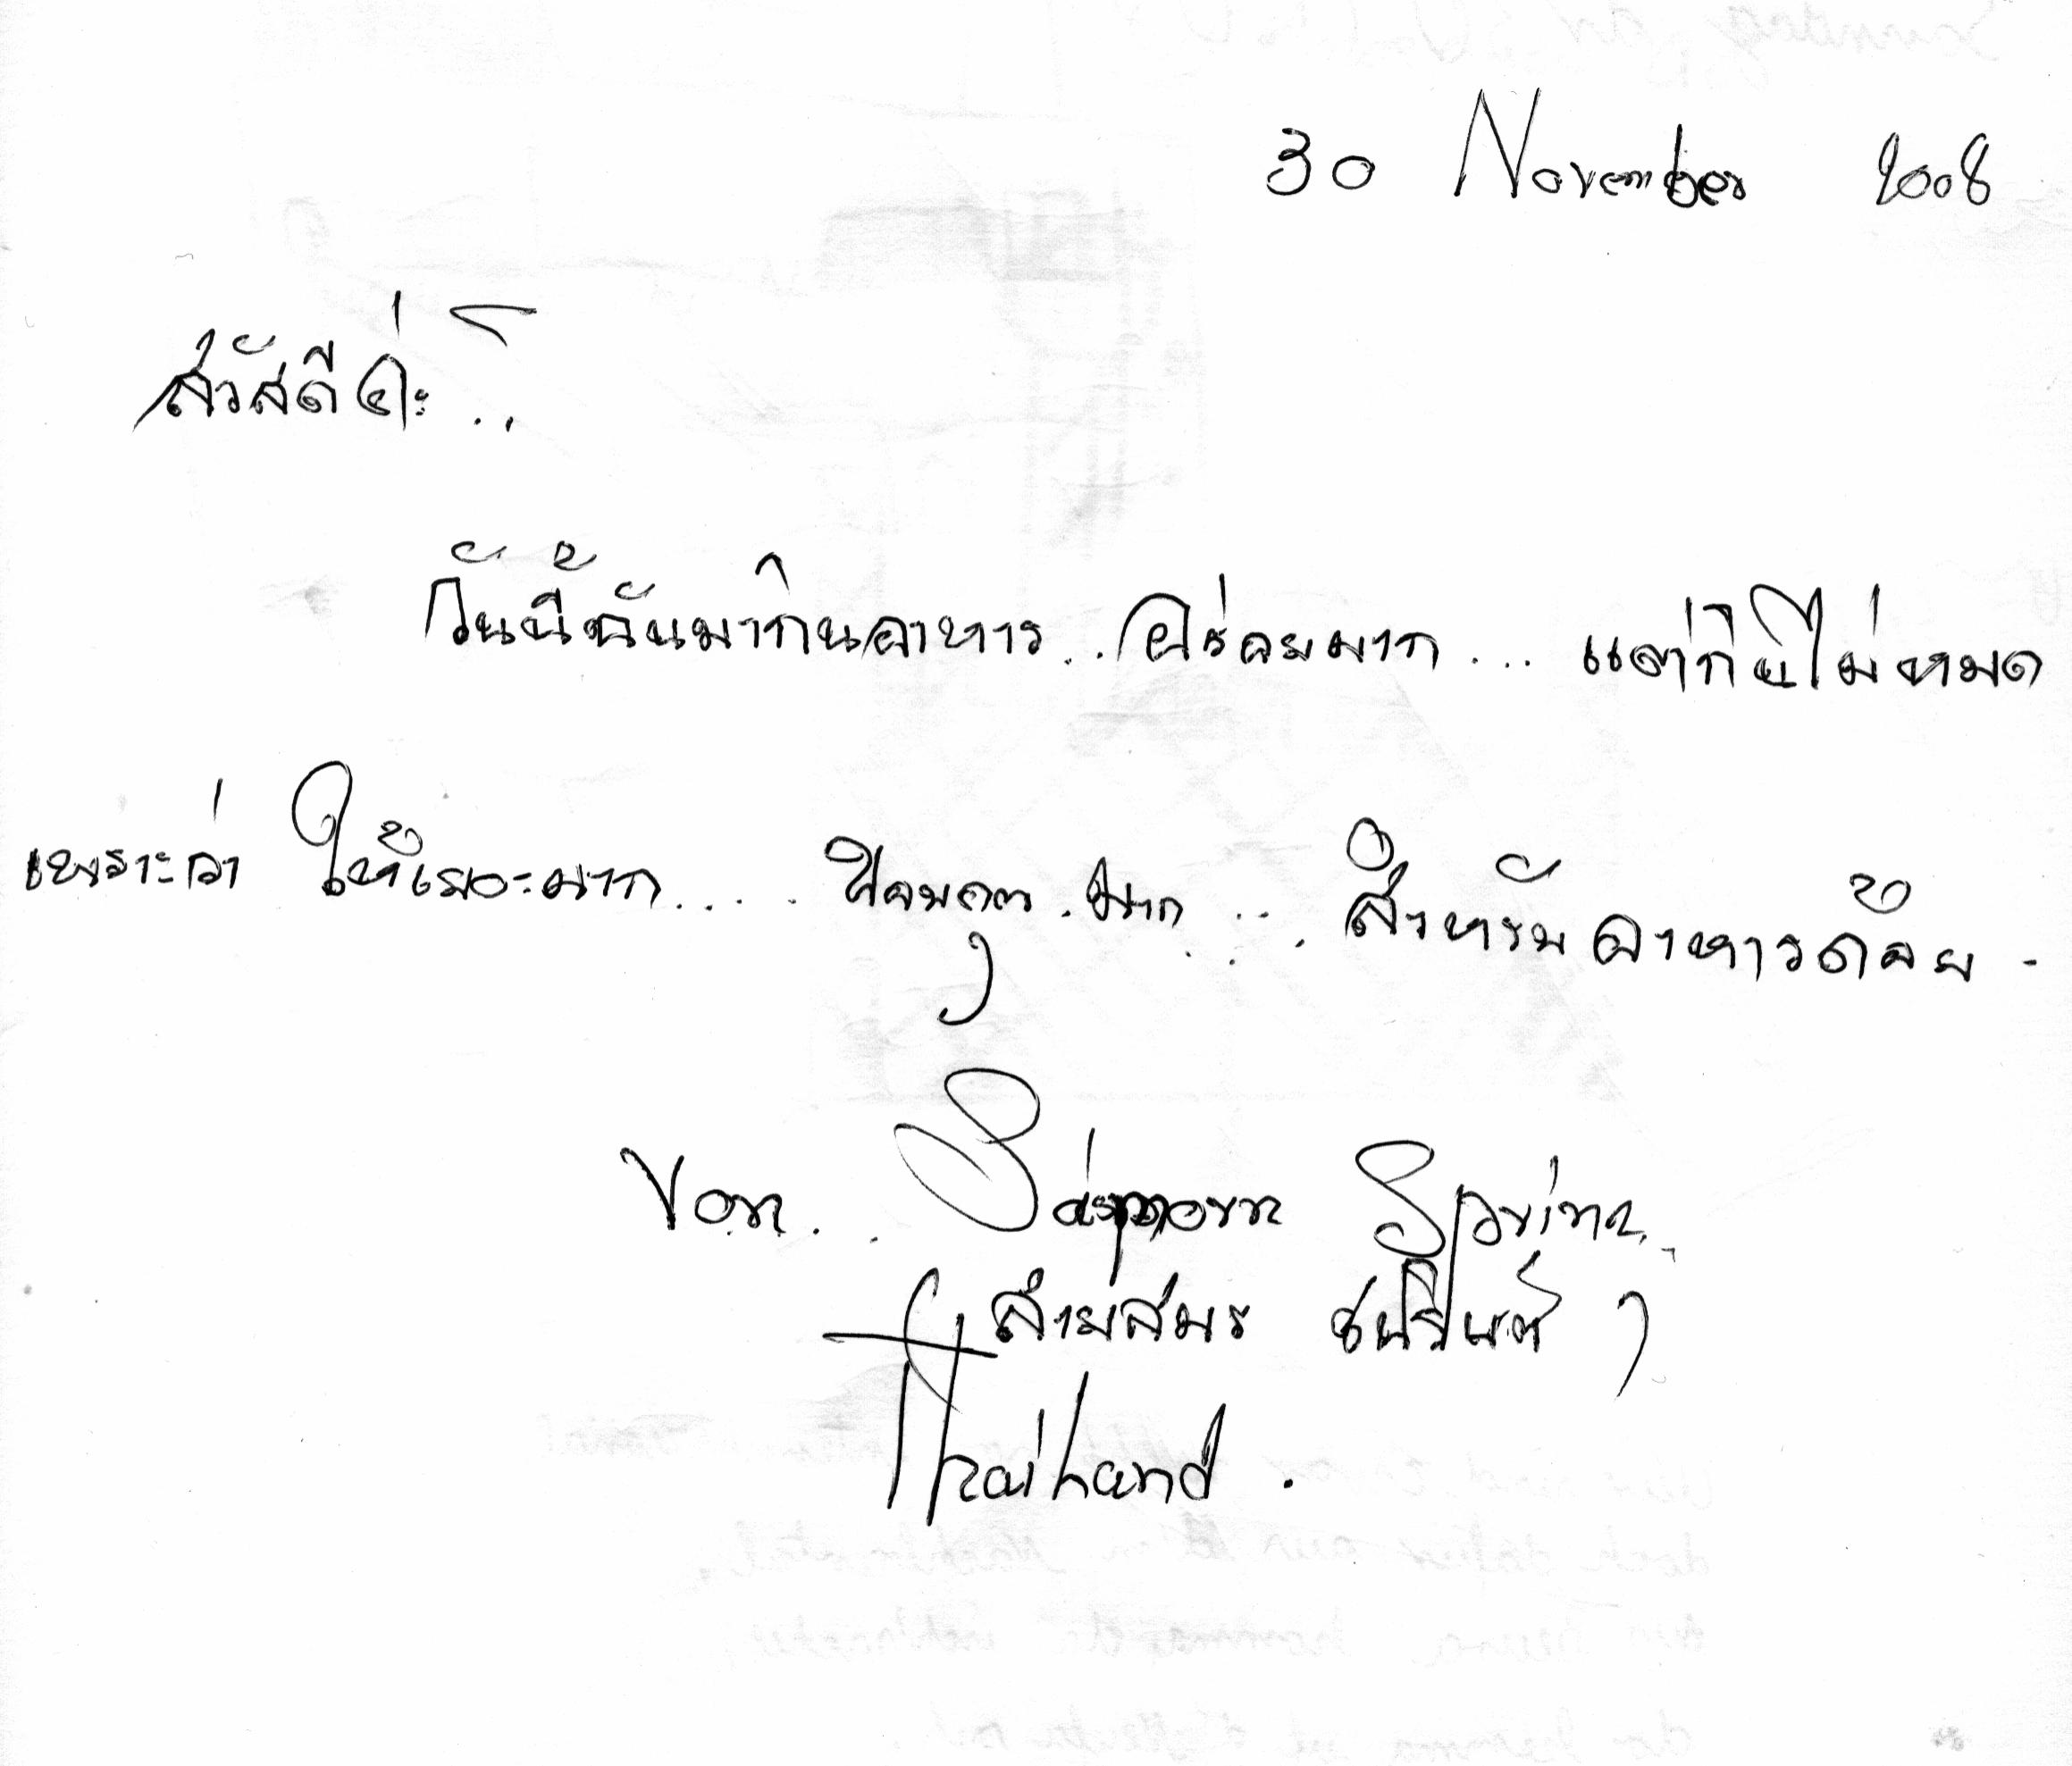 30 November 2008
สวัสดีค่ะ..
วันนี้ฉันมากินอาหาร.. อร่อยมาก... แต่กินไม่หมด
เพราะว่า ให้เยอะมาก..... ขอบคุณ.มาก... สำหรับอาหารด้วย -
Von.. Spring
สายสมร
Thailand.